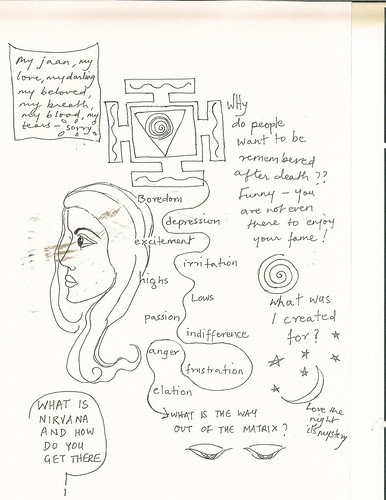 My jaan, my
love, my darling
my beloved,
my breath,
my blood, my
tears - sorry
Why
do people
want to be
remembered
after death ??
Funny - you
are not even
there to enjoy
your fame !
Boredom
depression
excitement
irritation
highs
Lows
passion
indifference
anger
frustration
elation
WHAT IS THE WAY
OUT OF THE MATRIX ?
What was
I created
for ?
Love the
night
its mystery
WHAT IS
NIRVANA
AND HOW
DO YOU
GET THERE